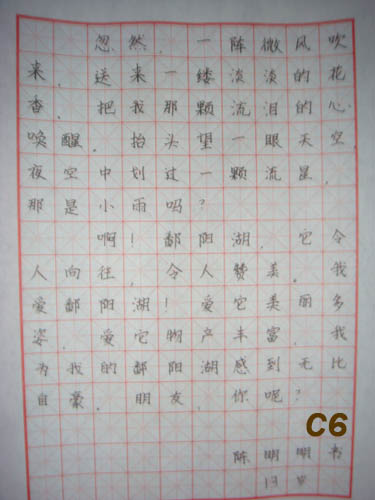 忽然，一阵微风吹
来，送来一缕淡淡的花
香，把我那颗流泪的心
唤醒，抬头望一眼天空，
夜空中划过一颗流星，
那是小雨吗？
啊！鄱阳湖，它令
人向往，令人赞美。我
爱鄱阳湖！爱它美丽多
姿，爱它物产丰富，我
为我的鄱阳湖感到无比
自豪，朋友，你呢？
C6
陈明明书
13岁